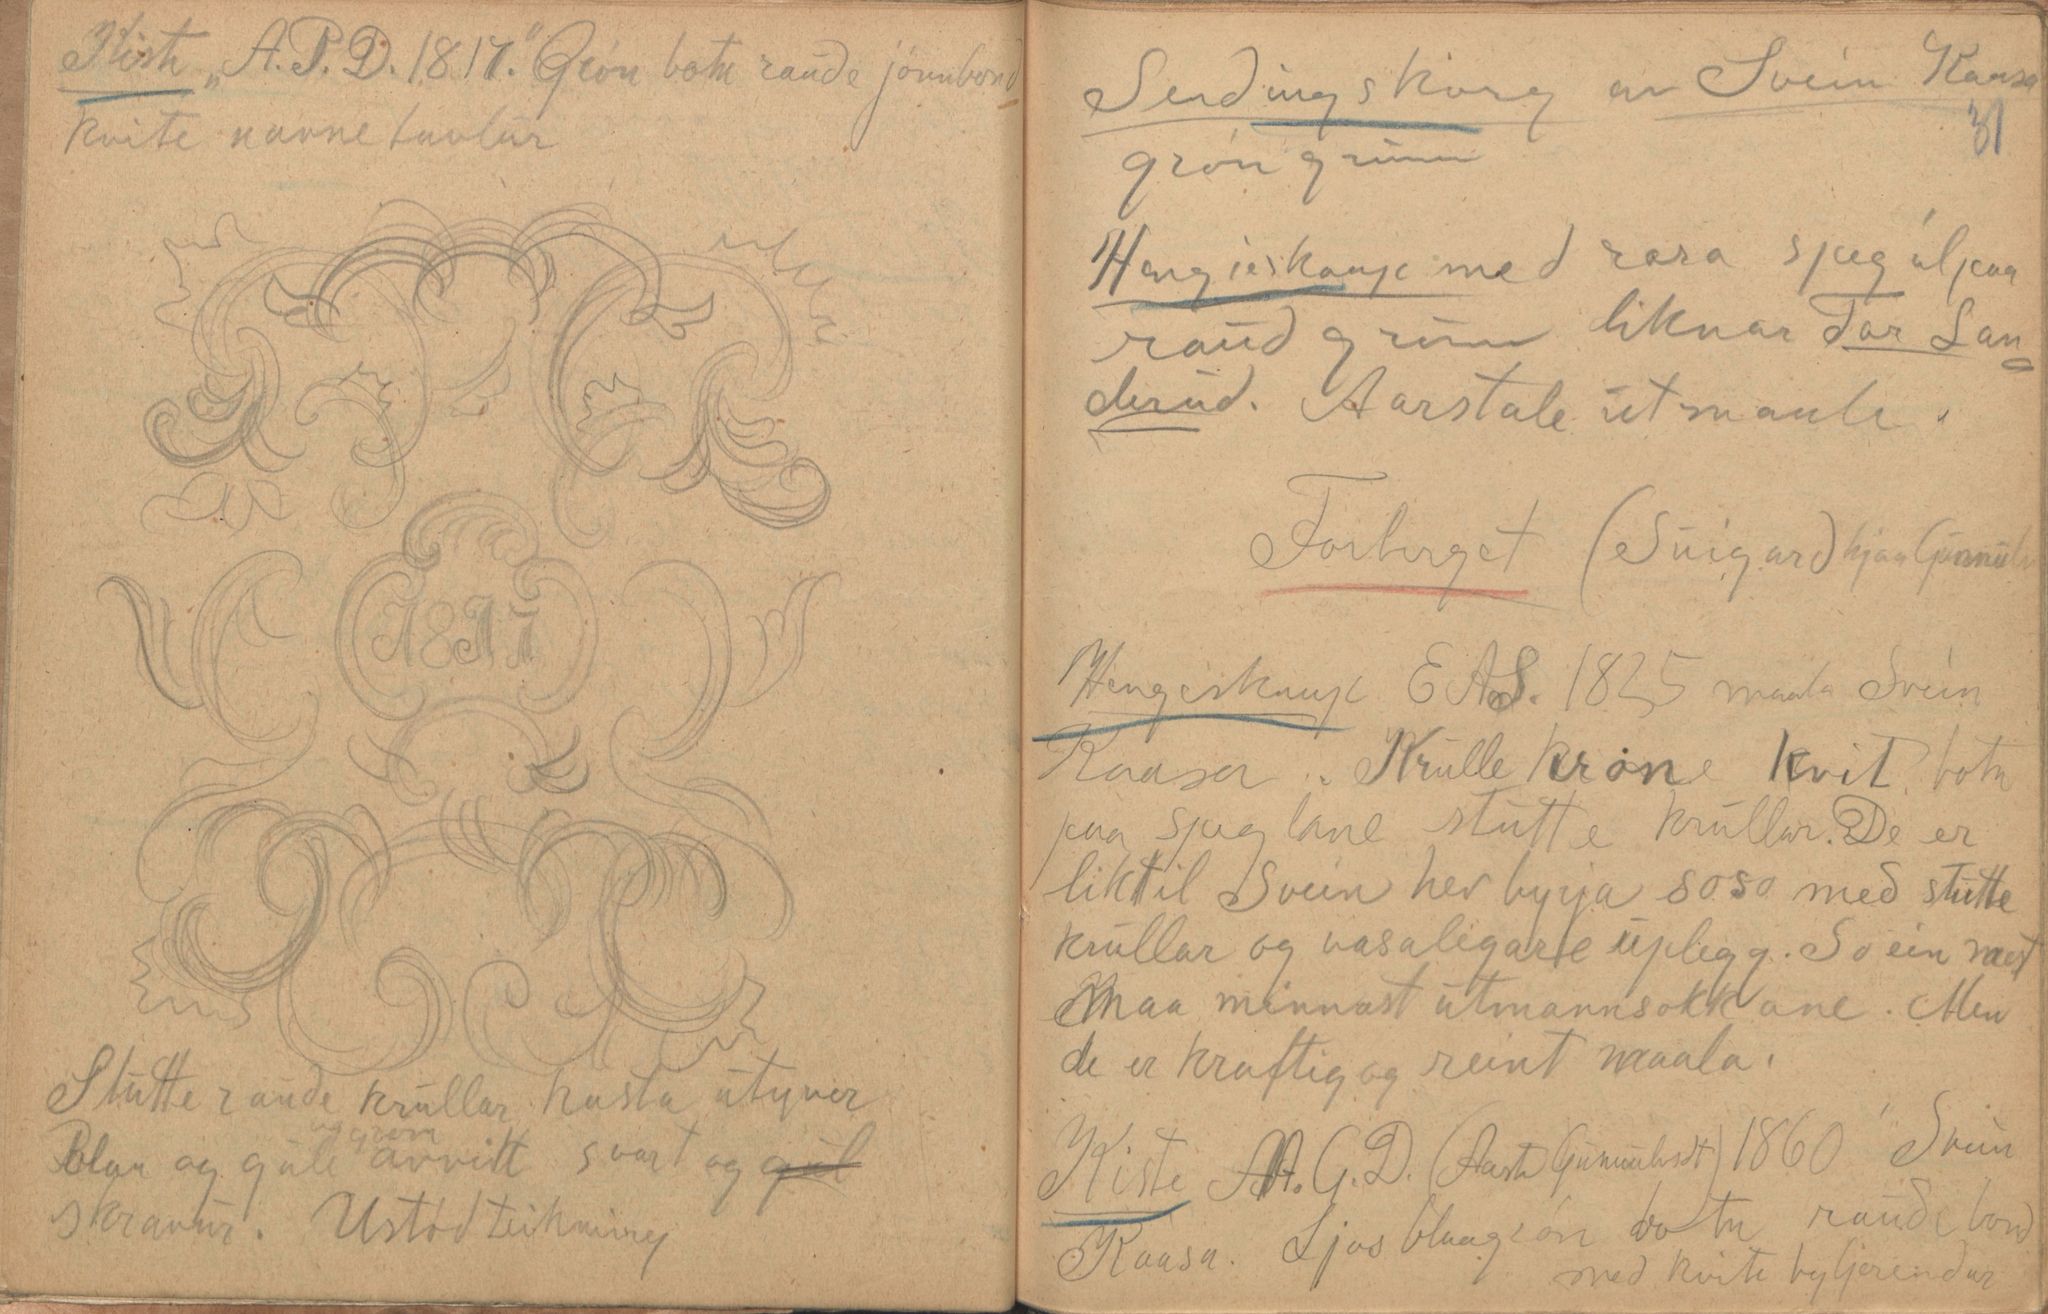 Kiste „A.P.D. 1817." Grón botn raude jónnbond
kvite navnetavlur
1817
Stutte raude krullar kasta utyver
og grøn
Blaa og gule avvitt svart og gul
skravur. Ustød teikning
Sendingskorg av Svein Kaasa
31
grón grunn
Hengjeskaap med rosa spegúl paa
raud grunn liknar Tor Lan-
derud. Aarstale utmaale.
Forberget (Suigard) hjaa Gunnulv
Hengjeskaap E.A.S. 1825 maala Svein
Kaasa. Krullekrone kvit botn
paa speglane stutte krullar. De er
likt til Svein hev byrja soso med stutte
krullar og vasaligare uplegg. So ein mest
maa minnast utmannsokkane. Men
de er kraftig og reint maala.
Kiste A.G.D. (Aaste Gunnulvsdt) 1860 Svein
Kaasa. Ljos blaagrón botn raude bond
med kvite byljerendar